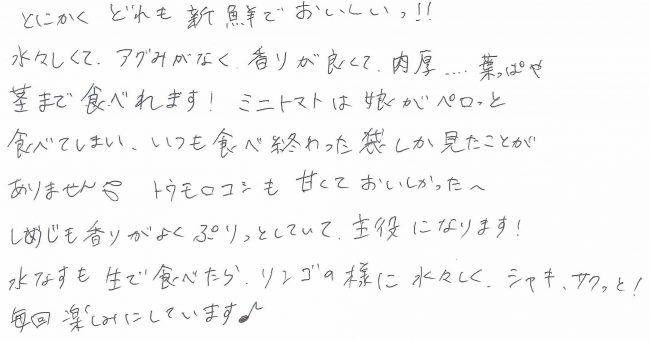 とにかく どれも 新鮮で おいしいっ!!
水々しくて、アグみがなく、香りが良くて、肉厚....葉っぱや
茎まで食べれます! ミニトマトは娘がペロっと
食べてしまい、いつも食べ終わった袋しか見たことが
ありません トウモロコシも 甘くて おいしかった〜
しめじも香りがよく ぷりっとしていて、主役になります!
水なすも 生で食べたら、リンゴの様に 水々しく、シャキ、サクっと!
毎回 楽しみにしています♪